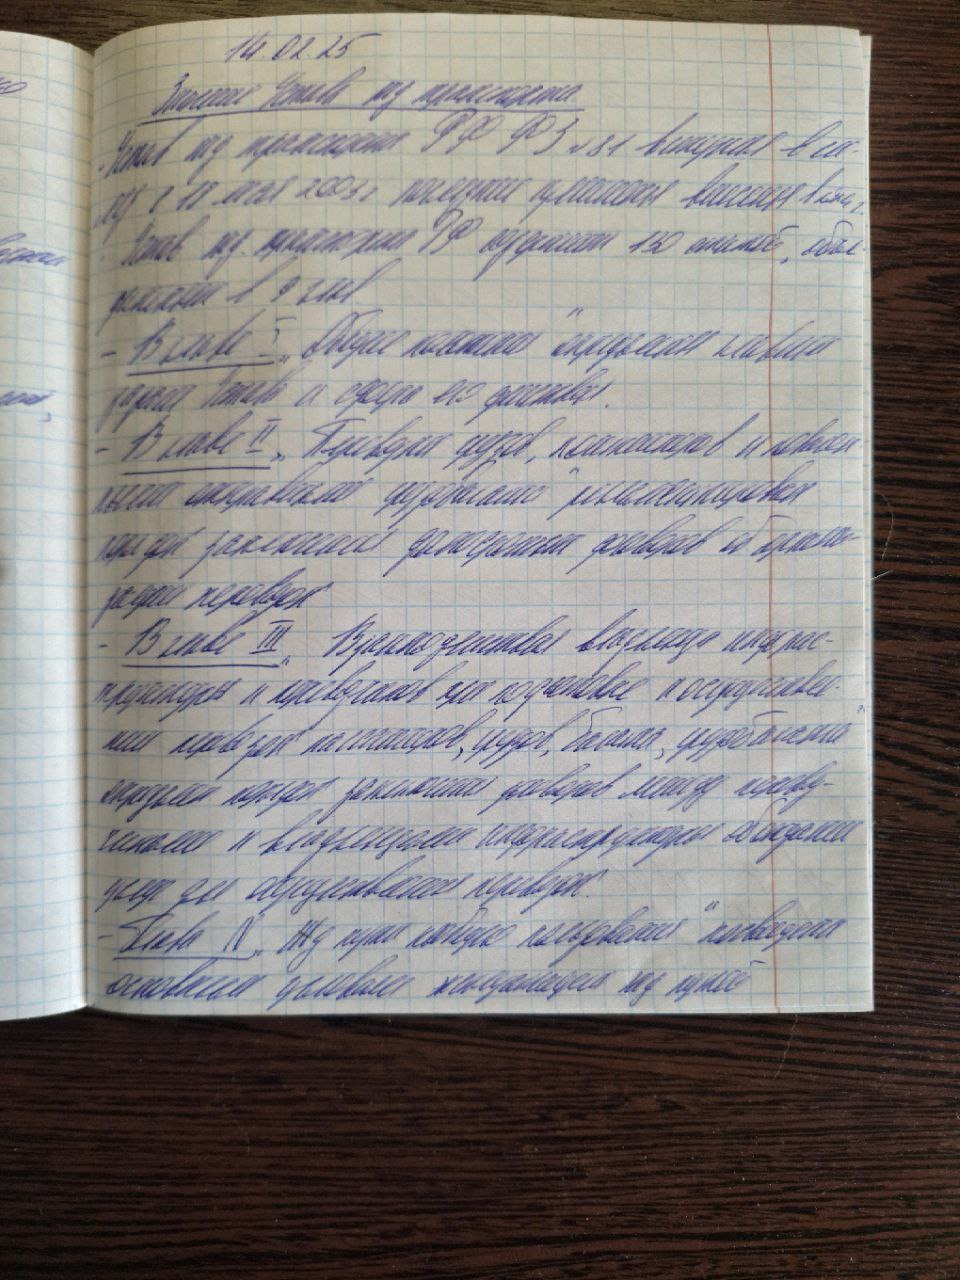 14.02.25
Значение Устава жд транспорта
- Устав жд транспорта РФ ФЗ №81 вступил в си-
лу с 18 мая 2003 г последние изменения внесены в
- Устав жд. транспорта РФ содержит 150 статей, объе-
диненных в 9 глав.
- В главе I „Общие положения" определены
задачи Устава и сфера его действия.
- В главе II „Перевозки грузов, контейнеров и
отправками грузобагажа" регламентирован
порядок заключения договоров об органи-
зации перевозок
- В главе III „Взаимодействия владельца инфрас-
труктуры и перевозчиков при подготовке и осуществле-
нии перевозок пассажиров, грузов, багажа, грузобагажа"
определен порядок заключения договоров между перевоз-
чиками и владельцами инфраструктуры об оказании
услуг для осуществления перевозок.
- Глава IV „Жд пути необщего пользования" посвящена
основным условиям эксплуатации жд путей